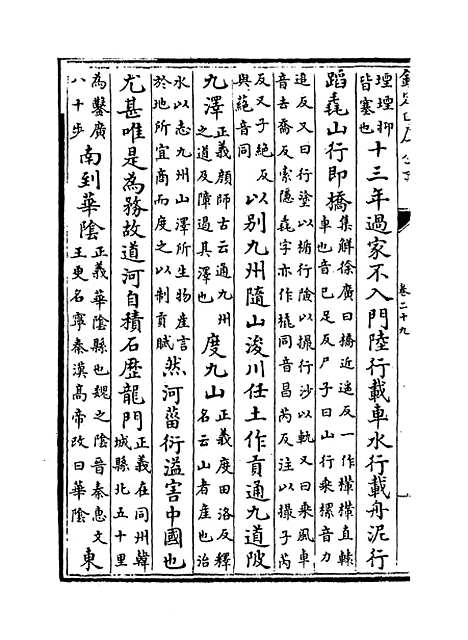 卷二十九
堙堙抑皆塞也十三年過家不入門陸行載車水行載舟泥行
蹈毳山行即橋集解徐廣曰橋近遥反一作檋檋直轅車也音己足反尸子曰山行乘樏音力
追反又曰行塗以楯行險以撮行沙以軌又曰乘風車音去喬反索隱毳字亦作橇同音昌芮反注以撮子芮
反又子絶反與蕝音同以别九州隨山浚川任土作貢通九道陂
九澤正義顔師古云通九州之道及障遏其澤也度九山正義度田洛反釋名云山者産也治
水以志九州山澤所生物産言於地所宜商而度之以制貢賦然河菑衍溢害中國也
尤甚唯是為務故道河自積石歴龍門正義在同州韓城縣北五十里
為鑿廣八十步南到華陰正義華陰縣也魏之陰晉秦惠文王更名寧秦漢髙帝改曰華陰東